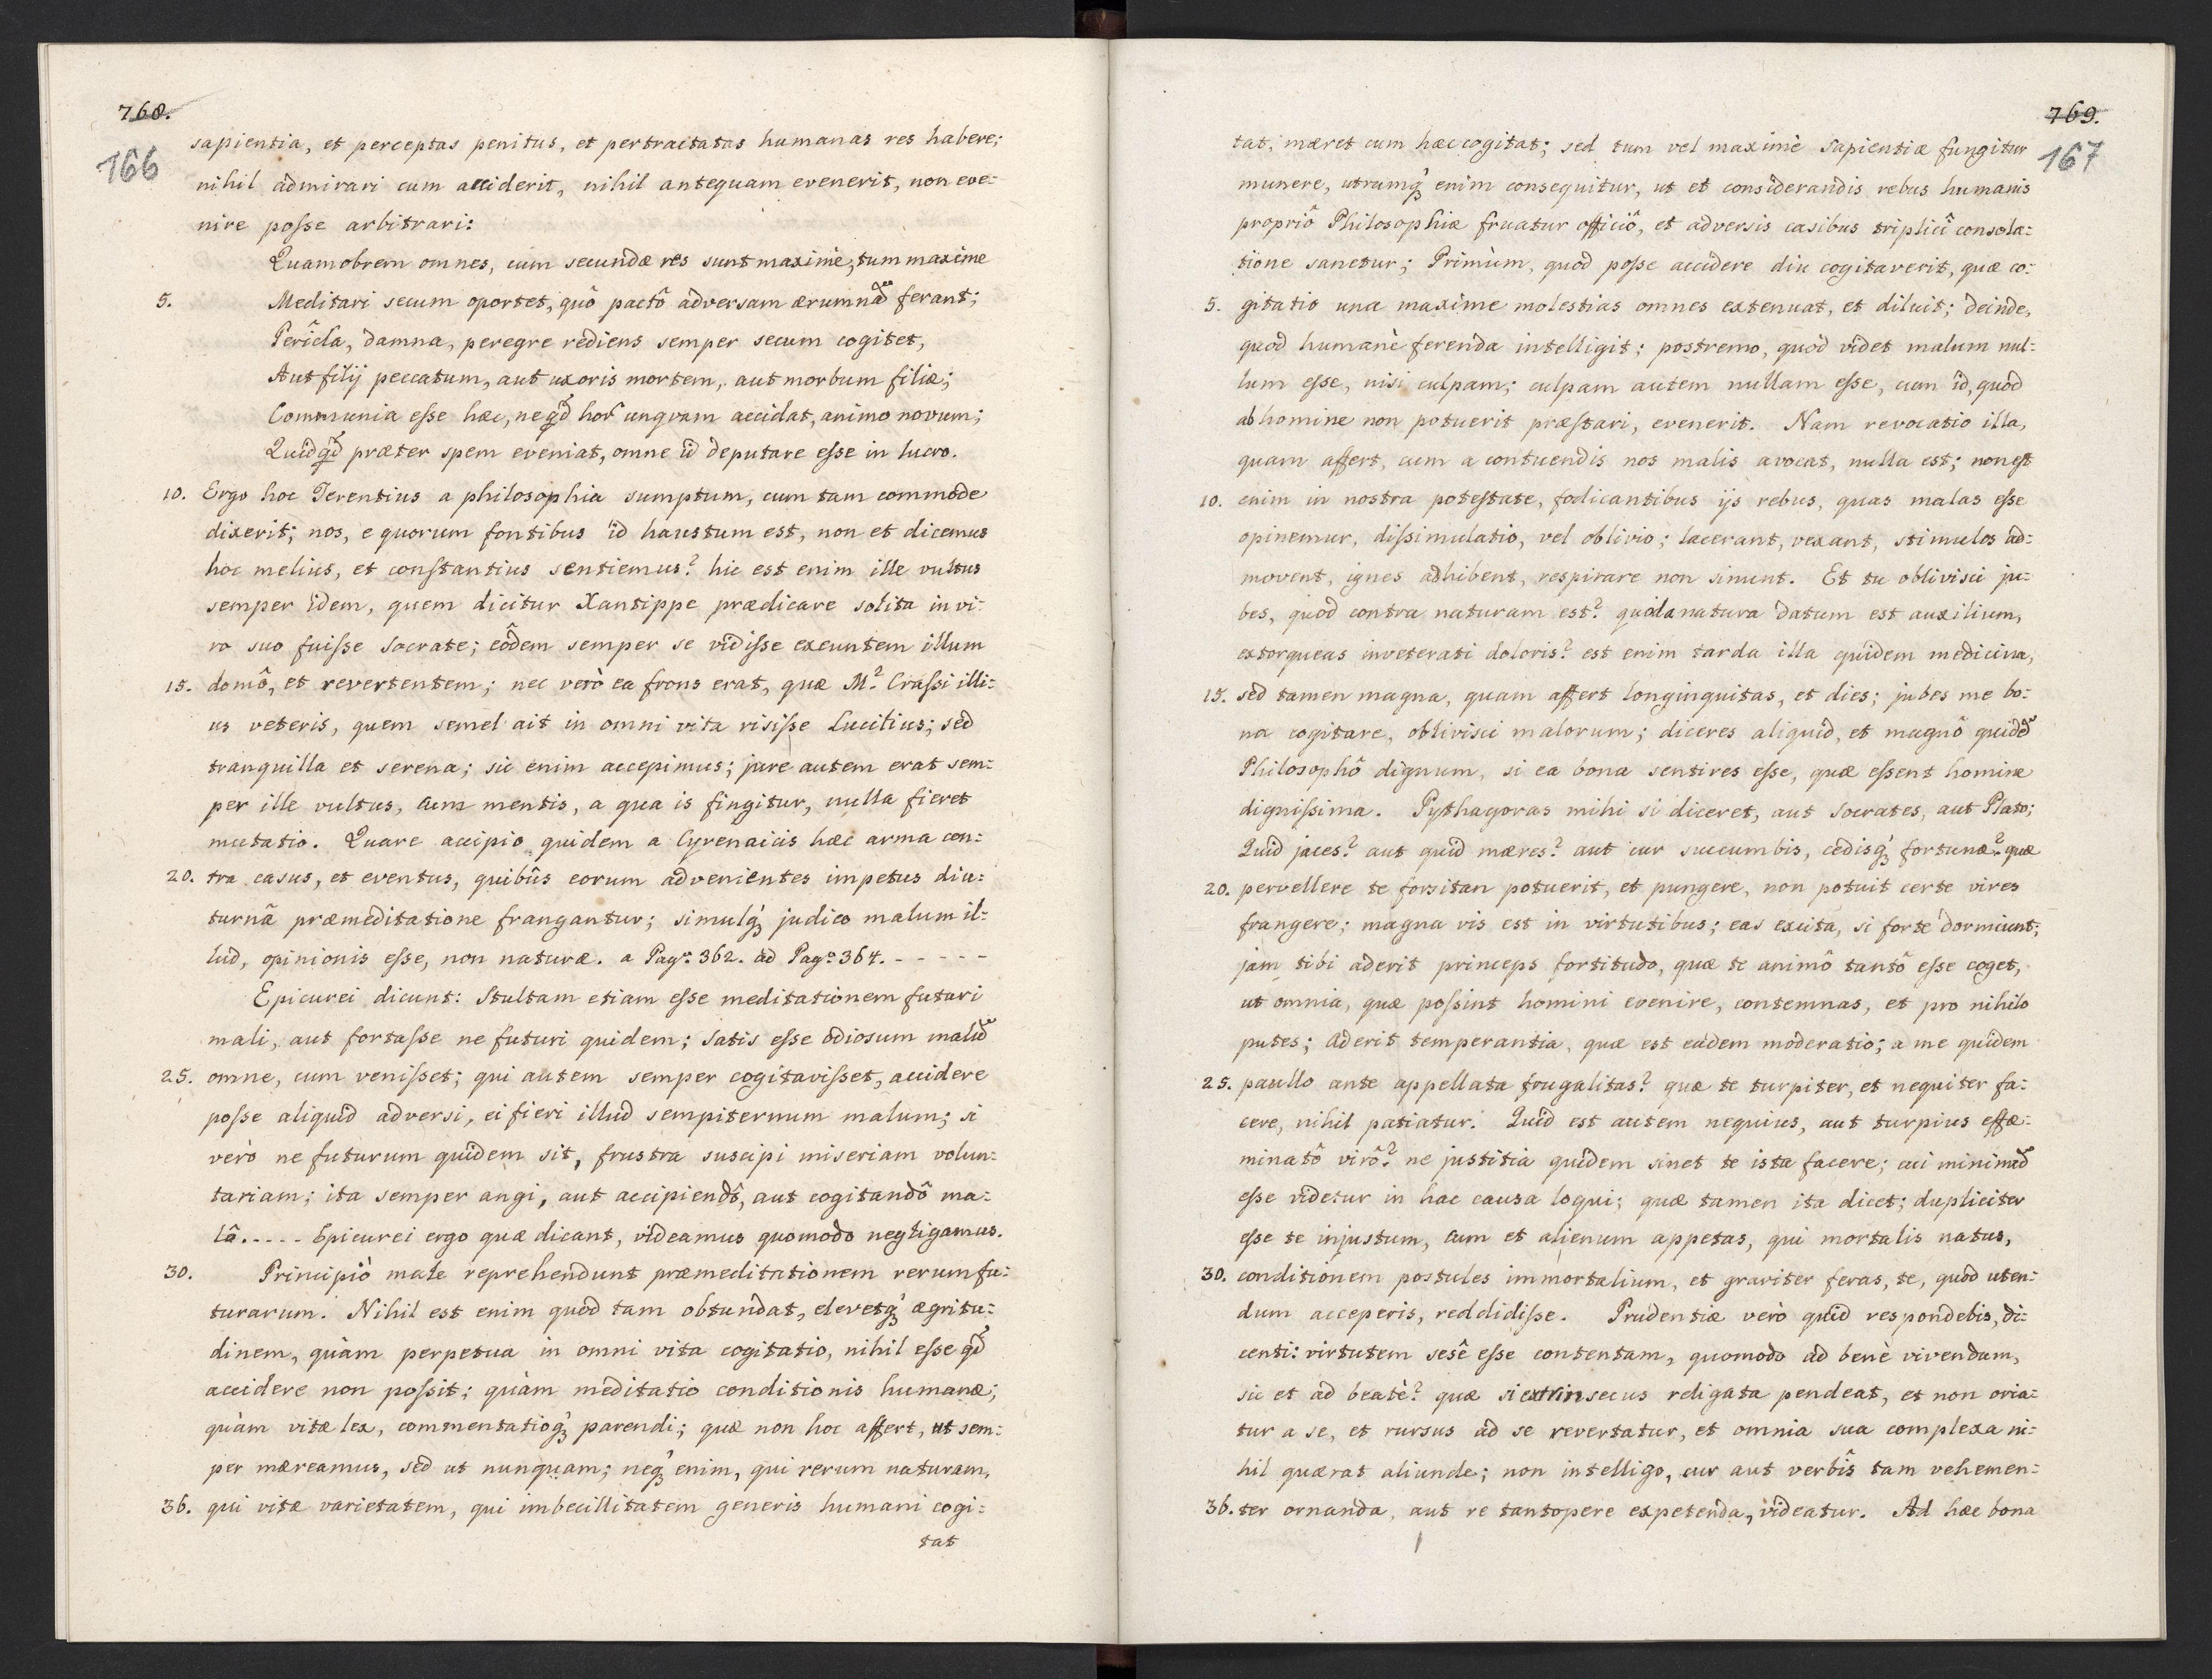 768.
166
sapientia, et perceptas penitus, et pertractatas humanas res habere;
nihil admirari cum acciderit, nihil antequam evenerit, non eve:
nire poſse arbitrari:
Quamobrem omnes, cum secundæ res sunt maximè, tum maxime
5. Meditari secum oportet, quô pactô adversam ærumnã ferant;
Periĉla, damna, peregre rediens semper secum cogitet,
Aut filij peccatum, aut uxoris mortem, aut morbum filiæ;
Communia eſse hæc, neqd̃ hoꝝ unquam accidat, animo novum;
Quidqd̃ præter spem eveniat, omne id deputare eſse in lucro.
10. Ergo hoc Terentius a philosophia sumptum, cum tam commode
dixerit; nos, e quorum fontibus id haustum est, non et dicemus
hoc melius, et conſtantius sentiemus? hic est enim ille vultus
semper idem, quem dicitur Xantippe prædicare solita in vi:
ro suo fuiſse Socrate; eôdem semper se vidiſse exeuntem illum
15. domô, et revertentem; nec verò ea frons erat, quæ M.² Craſsi illi:
us veteris, quem semel ait in omni vita risiſse Lucilius; sed
tranquilla et serena; sic enim accepimus; jure autem erat sem:
per ille vultus, cum mentis, a qua is fingitur, nulla fieret
mutatio. Quare accipio quidem a Cyrenaicis hæc arma con:
20. tra casus, et eventus, quibûs eorum advenientes impetus diu:
turnâ præmeditatione frangantur; simulqꝫ judico malum il:
lud, opinionis eſse, non naturæ. a Pag.ᵃ 362. ad Pag.ᵃ 364. - - - - -
Epicurei dicunt: Stultam etiam eſse meditationem futuri
mali, aut fortaſse ne futuri quidem; satis eſse odiosum malũ
25. omne, cum veniſset; qui autem semper cogitaviſset, accidere
poſse aliquid adversi, ei fieri illud sempiternum malum; si
verò ne futurum quidem sit, frustra suscipi miseriam volun:
tariam; ita semper angi, aut accipiendô, aut cogitandô ma:
lô. - - - - Epicurei ergo quæ dicant, videamus quomodo negligamus.
30. Principiò male reprehendunt præmeditationem rerum fu:
turarum. Nihil est enim quod tam obtundat, elevetqꝫ ægritu:
dinem, quàm perpetua in omni vita cogitatio, nihil eſse qd̃
accidere non poſsit; quàm meditatio conditionis humanæ;
quàm vitæ lex, commentatioqꝫ parendi; quæ non hoc affert, ut sem:
per mæreamus, sed ut nunquam; neqꝫ enim, qui rerum naturam,
36. qui vitæ varietatem, qui imbecillitatem generis humani cogi:
tat
769.
167
tat, mæret cum hæc cogitat; sed tum vel maximè Sapientiæ fungitur
munere, utrumqꝫ enim consequitur, ut et considerandis rebus humanis
propriô Philosophiæ fruatur officiô, et adversis casibus triplicî consola:
tione sanetur; Primùm, quod poſse accidere diu cogitaverit, quæ co:
5. gitatio una maxime molestias omnes extenuat, et diluit; deinde,
quod humanè ferenda intelligit; postremo, quòd videt malum nul:
lum eſse, nisi culpam; culpam autem nullam eſse, cum id, quod
ab homine non potuerit præſtari, evenerit. Nam revocatio illa,
quam affert, cum a contuendis nos malis avocat, nulla est; non eſt
10. enim in nostra poteſtate, fodicantibus ijs rebus, quas malas eſse
opinemur, diſsimulatio, vel oblivio; lacerant, vexant, stimulos ad:
movent, ignes adhibent, respirare non sinunt. Et tu oblivisci ju:
bes, quod contra naturam est? quod a natura datum est auxilium,
extorqueas inveterati doloris? est enim tarda illa quidem medicina,
15. sed tamen magna, quam affert longinquitas, et dies; jubes me bo:
na cogitare, oblivisci malorum; diceres aliquid, et magnô quidẽ
Philosophô dignum, si ea bona sentires eſse, quæ eſsent homine
digniſsima. Pythagoras mihi si diceret, aut Socrates, aut Plato;
Quid jaces? aut quid mæres? aut cur succumbis, cedisqꝫ fortunæ? quæ
20. pervellere te forsitan potuerit, et pungere, non potuit certe vires
frangere; magna vis est in virtutibus; eas excita, si forte dormiunt;
jam tibi aderit princeps fortitudo, quæ te animô tantô eſse coget,
ut omnia, quæ poſsint homini evenire, contemnas, et pro nihilo
putes; Aderit temperantia, quæ est eadem moderatio; a me quidem
25. paullo ante appellata frugalitas? quæ te turpiter, et nequiter fa:
cere, nihil patiatur. Quid est autem nequius, aut turpius effæ:
minatô virô? ne justitia quidem sinet te ista facere; cui minimũ
eſse videtur in hac causa loqui; quæ tamen ita dicet; dupliciter
eſse te injustum, cum et alienum appetas, qui mortalis natus,
30. conditionem postules immortalium, et graviter feras, te, quod uten:
dum acceperis, reddidiſse. Prudentiæ verò quid respondebis, di:
centi: virtutem sesê eſse contentam, quomodo ad benè vivendum,
sic et ad beatè? quæ si extrinsecus religata pendeat, et non oria:
tur a se, et rursus ad se revertatur, et omnia sua complexa ni:
hil quærat aliunde; non intelligo, cur aut verbîs tam vehemen:
36. ter ornanda, aut re tantopere expetenda, videatur. Ad hæc bona